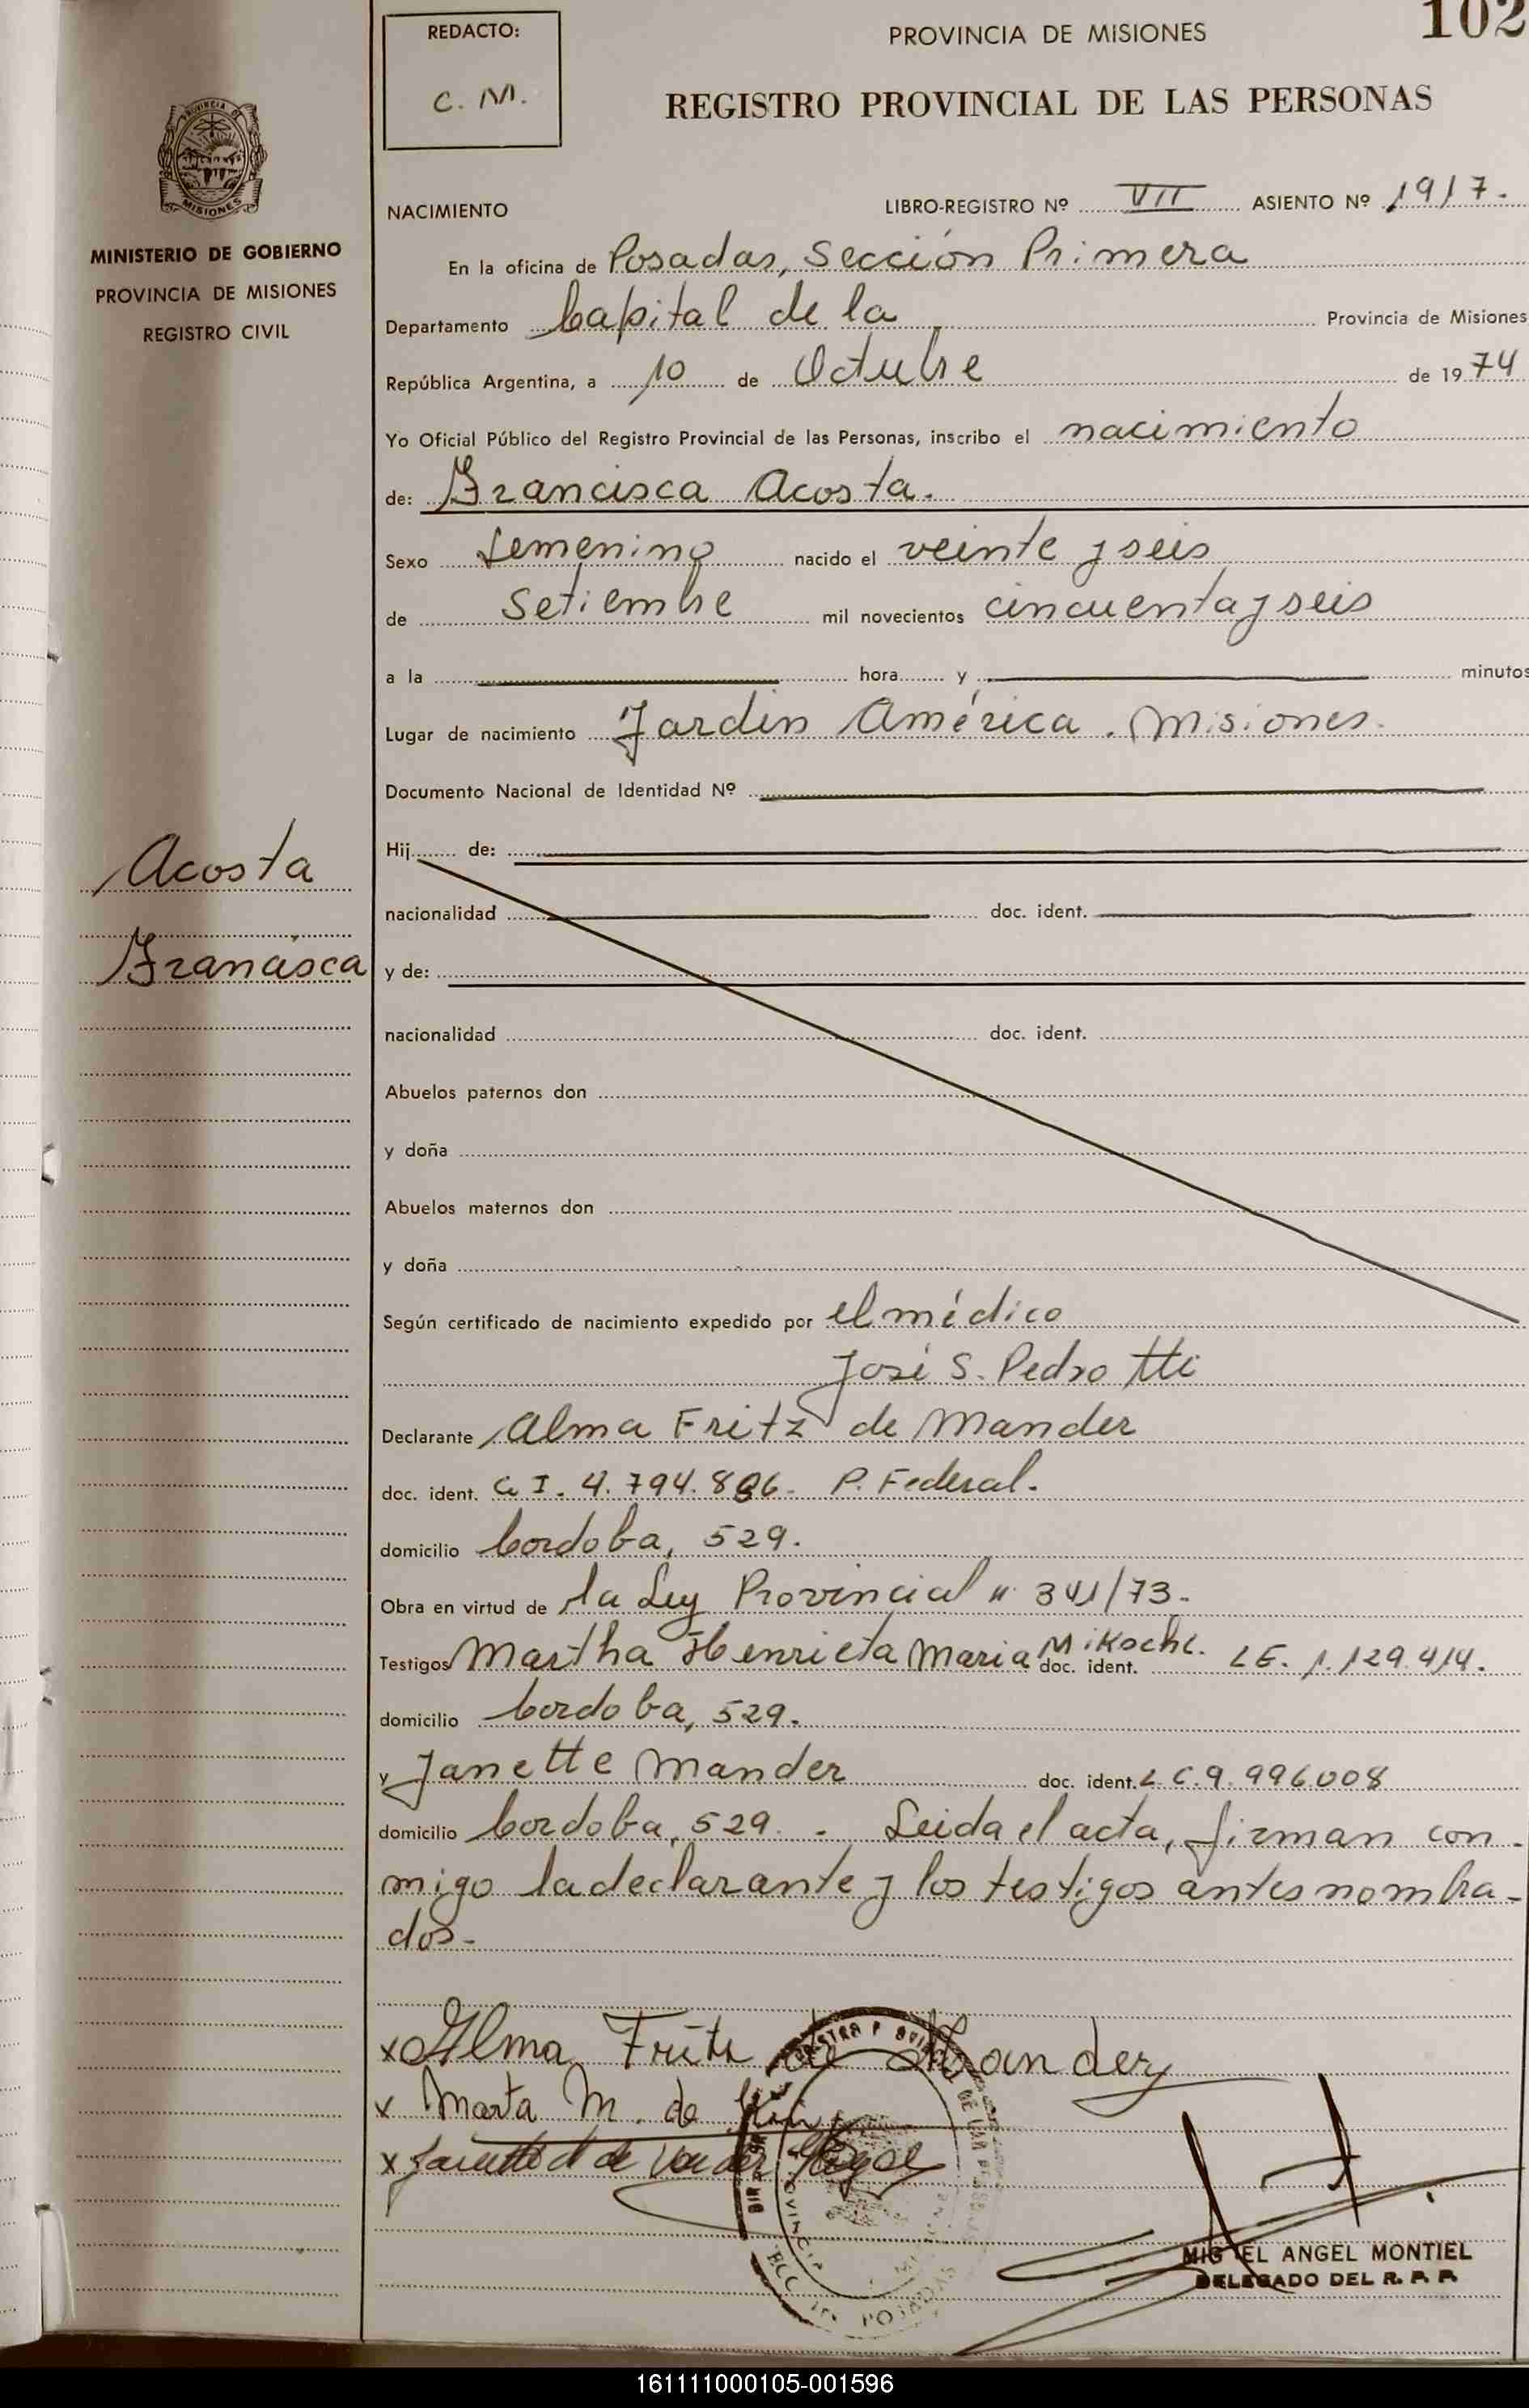 102
REDACTO:
C. M.
PROVINCIA DE MISIONES
REGISTRO PROVINCIAL DE LAS PERSONAS
PROVINCIA D
MISIONES
MINISTERIO DE GOBIERNO
PROVINCIA DE MISIONES
REGISTRO CIVIL
NACIMIENTO LIBRO-REGISTRO Nº VII ASIENTO Nº 1917.
En la oficina de Posadas, Sección Primera
Departamento Capital de la Provincia de Misiones
República Argentina, a 10 de Octubre de 1974
Yo Oficial Público del Registro Provincial de las Personas, inscribo el nacimiento
de: Francisca Acosta.
Sexo femenino nacido el veinte y seis
de Setiembre mil novecientos cincuenta y seis
a la hora y minutos
Lugar de nacimiento Jardín América. Misiones.
Documento Nacional de Identidad Nº
Hij de:
Acosta
nacionalidad doc. ident.
Francisca
y de:
nacionalidad doc. ident.
Abuelos paternos don
y doña
Abuelos maternos don
y doña
Según certificado de nacimiento expedido por el médico
José S. Pedrotti
Declarante Alma Fritz de Mander
doc. ident. C. I. 4.794.886- P. Federal.
domicilio Cordoba, 529.
Obra en virtud de la Ley Provincial nº 341/73-
Testigos Martha Henrieta Maria Mikochc. doc. ident. LE. 1.129.414.
domicilio Cordoba, 529.
y Janette Mander doc. ident. L C. 9.996008
domicilio Cordoba, 529. - Leida el acta, firman con-
migo la declarante y los testigos antes nombra-
dos-
x Alma Fritz de Mander
x Marta M. de
x
POSADAS
MIGUEL ANGEL MONTIEL
DELEGADO DEL R. P. P.
161111000105-001596